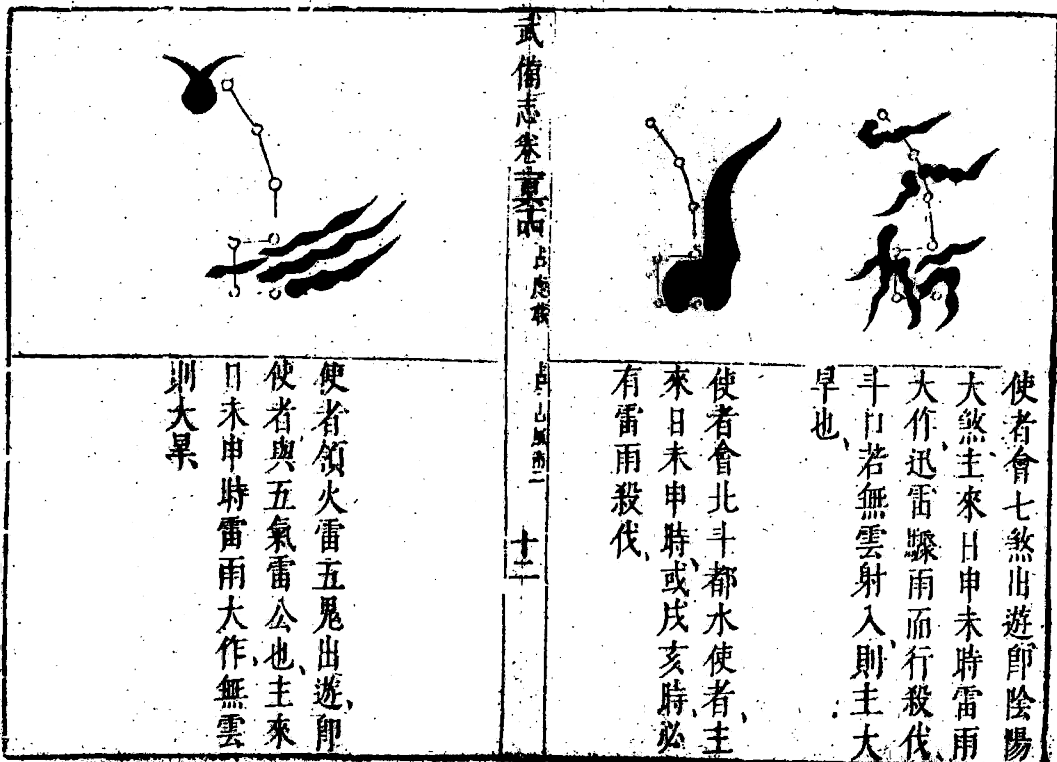 使者會七煞出遊卽陰陽
大煞、主來日申未時雷雨
大作、迅雷驟雨而行殺伐、
斗口若無雲射入、則主大
旱也、
使者會北斗都水使者、主
來日未申時、或戌亥時、必
有雷雨殺伐、
武備志卷
占度載
十二
使者領火雷五鬼出遊、卽
使者與五氣雷公也、主來
日未申時雷雨大作、無雲
則大旱、